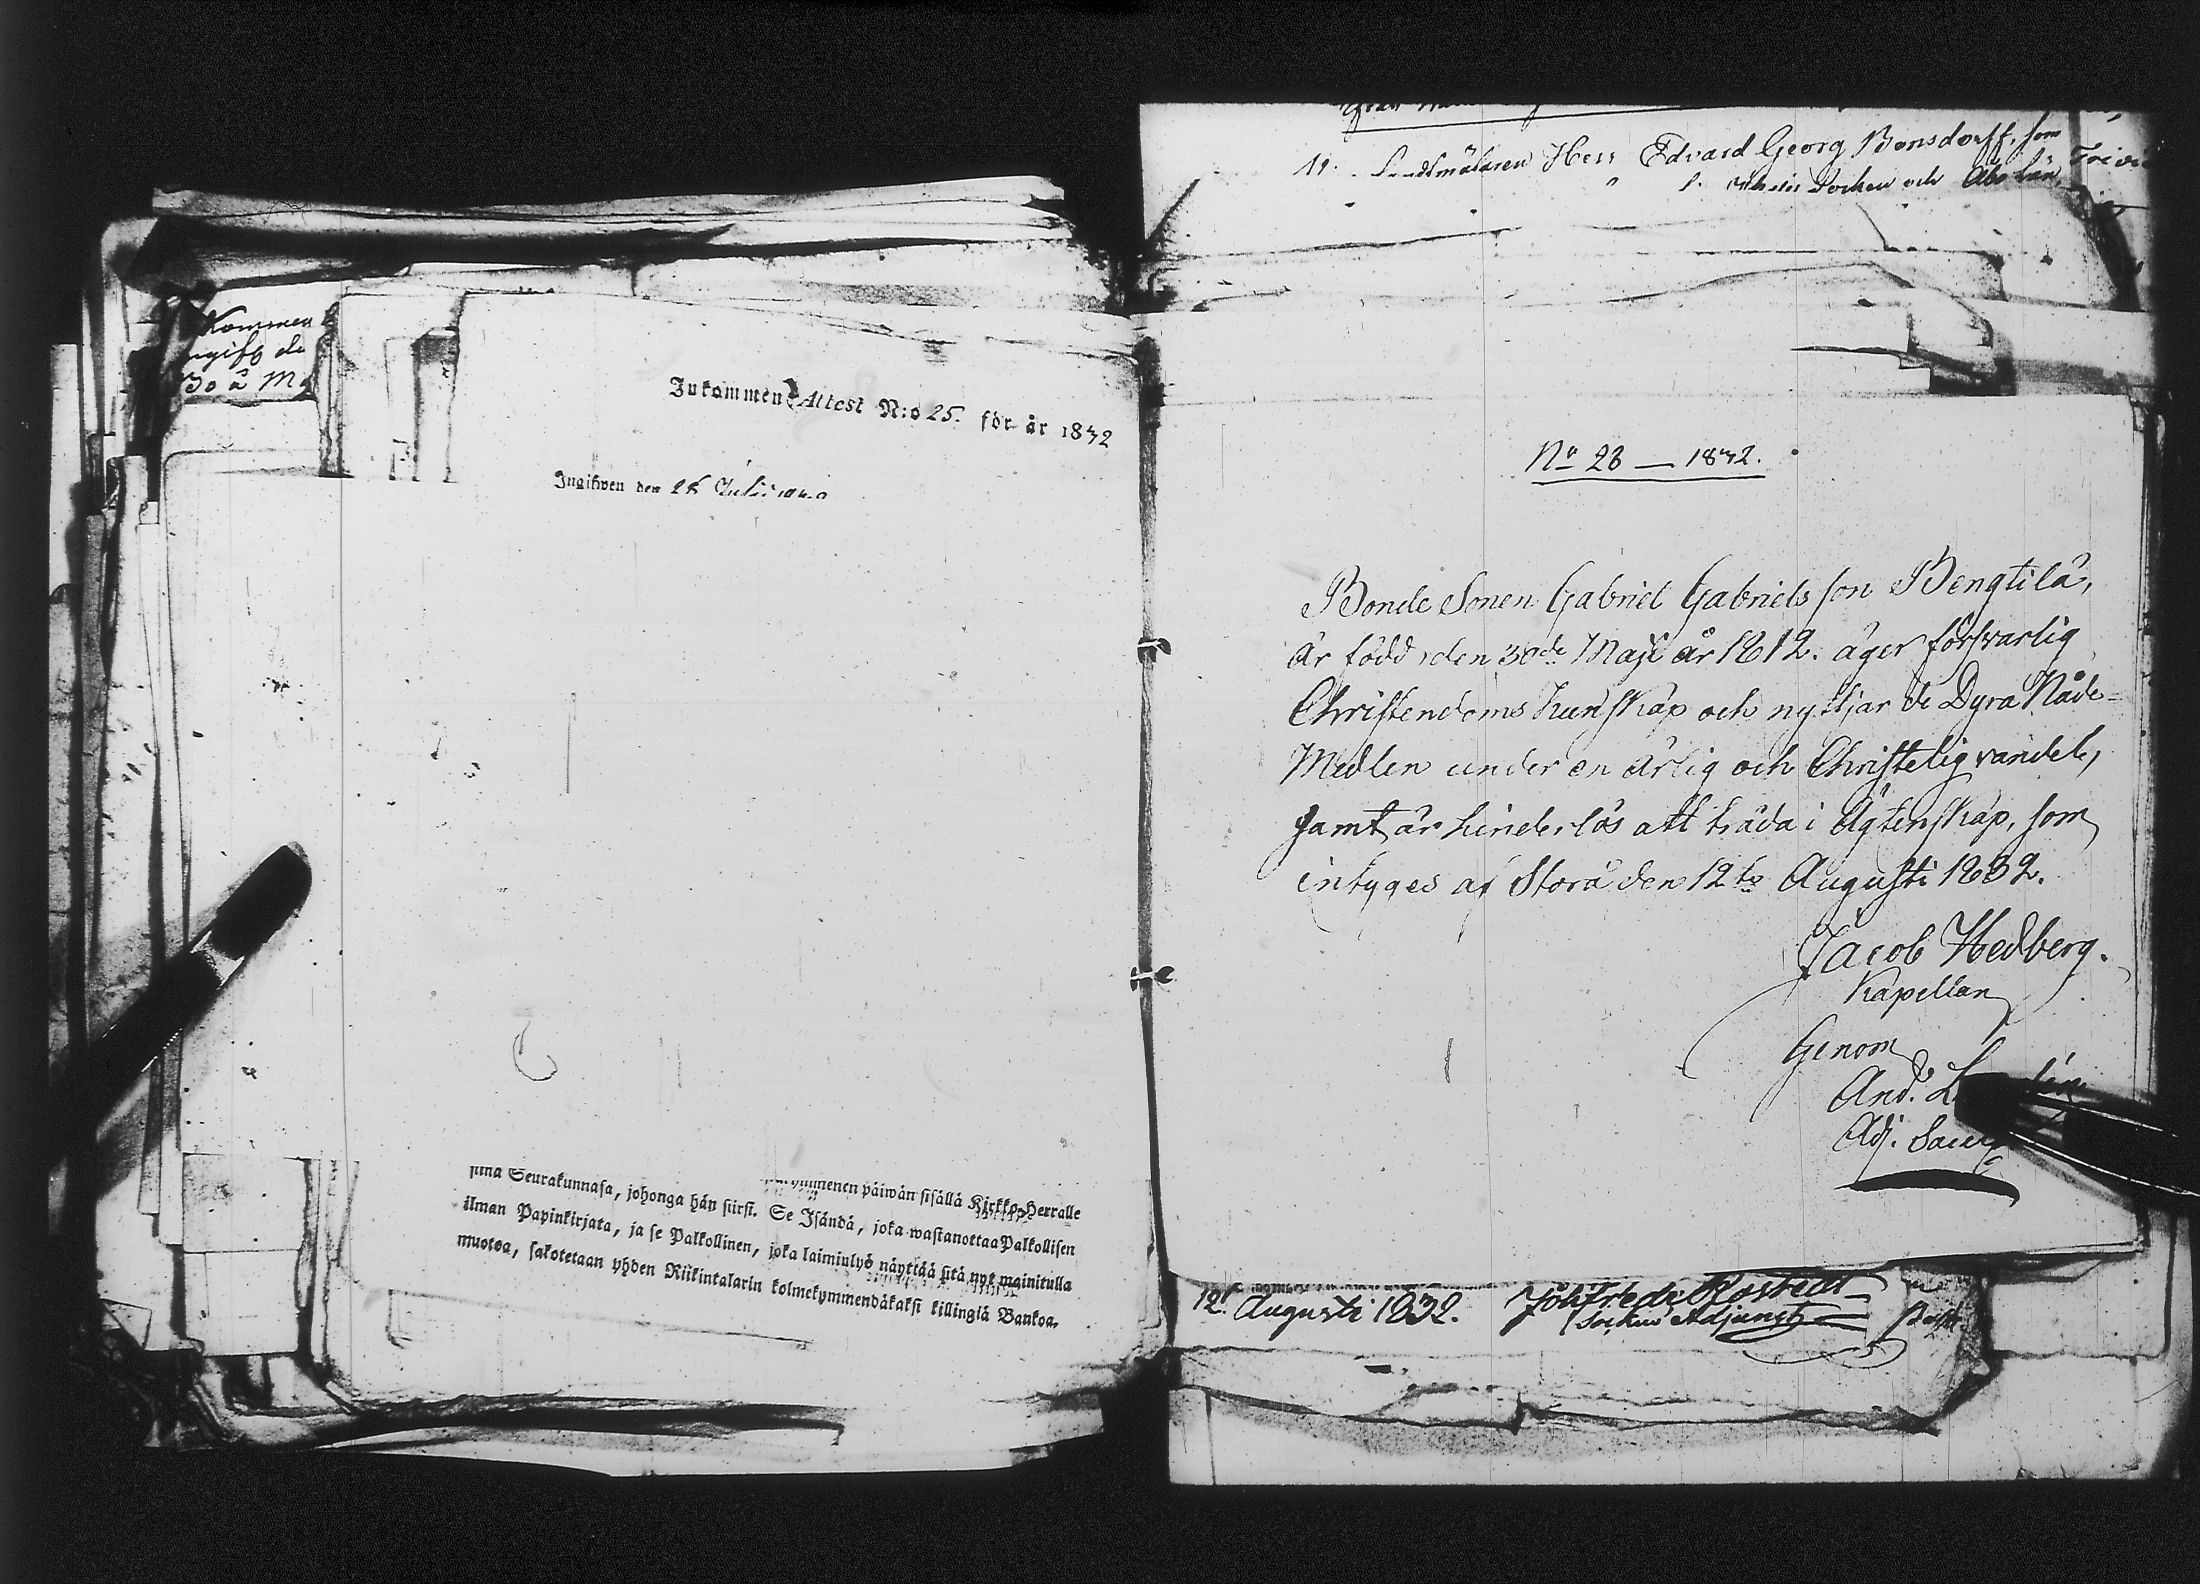 Kommen
ngift de
Bo å Ma
Inkommen Attest N:o 25. för år 1832
Ingifwen den 28 Julii
sinä Seurakunnasa, johonga hän siirsi. Se Isändä, joka wastanottaa Palkollisen
päiwän sisällä Kirkko-Herralle
ilman Papinkirjata, ja se Palkollinen, joka laiminlyö näyttää sitä nyt mainitulla
muotoa, sakotetaan yhden Riikintalarin kolmekymmendäkaksi killingiä Bankoa.
11. Landtmätaren Herr Edvard Georg Bonsdorff, som
Socken och Åbo Län,
No 28 — 1832.
Bonde Sonen Gabriel Gabriels son Bengtilä,
är född den 30de Maji år 1812. äger försvarlig
Christendoms kunskap och nyttjar de Dyra Nåde-
Medlen under en ärlig och Christelig vandel,
samt är hinderlös att träda i Ägtenskap, som
intyges af Storå den 12te Augusti 1832.
Jacob Hedberg.
Kapellan
Genom
And. L
Adj. Sacr
12t Augusti 1832. Joh Fredr
Adjunct